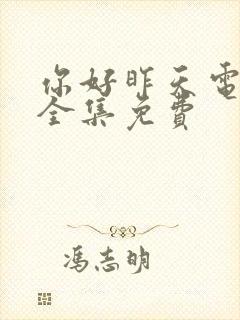 你好昨天電
全集免費
馮志明